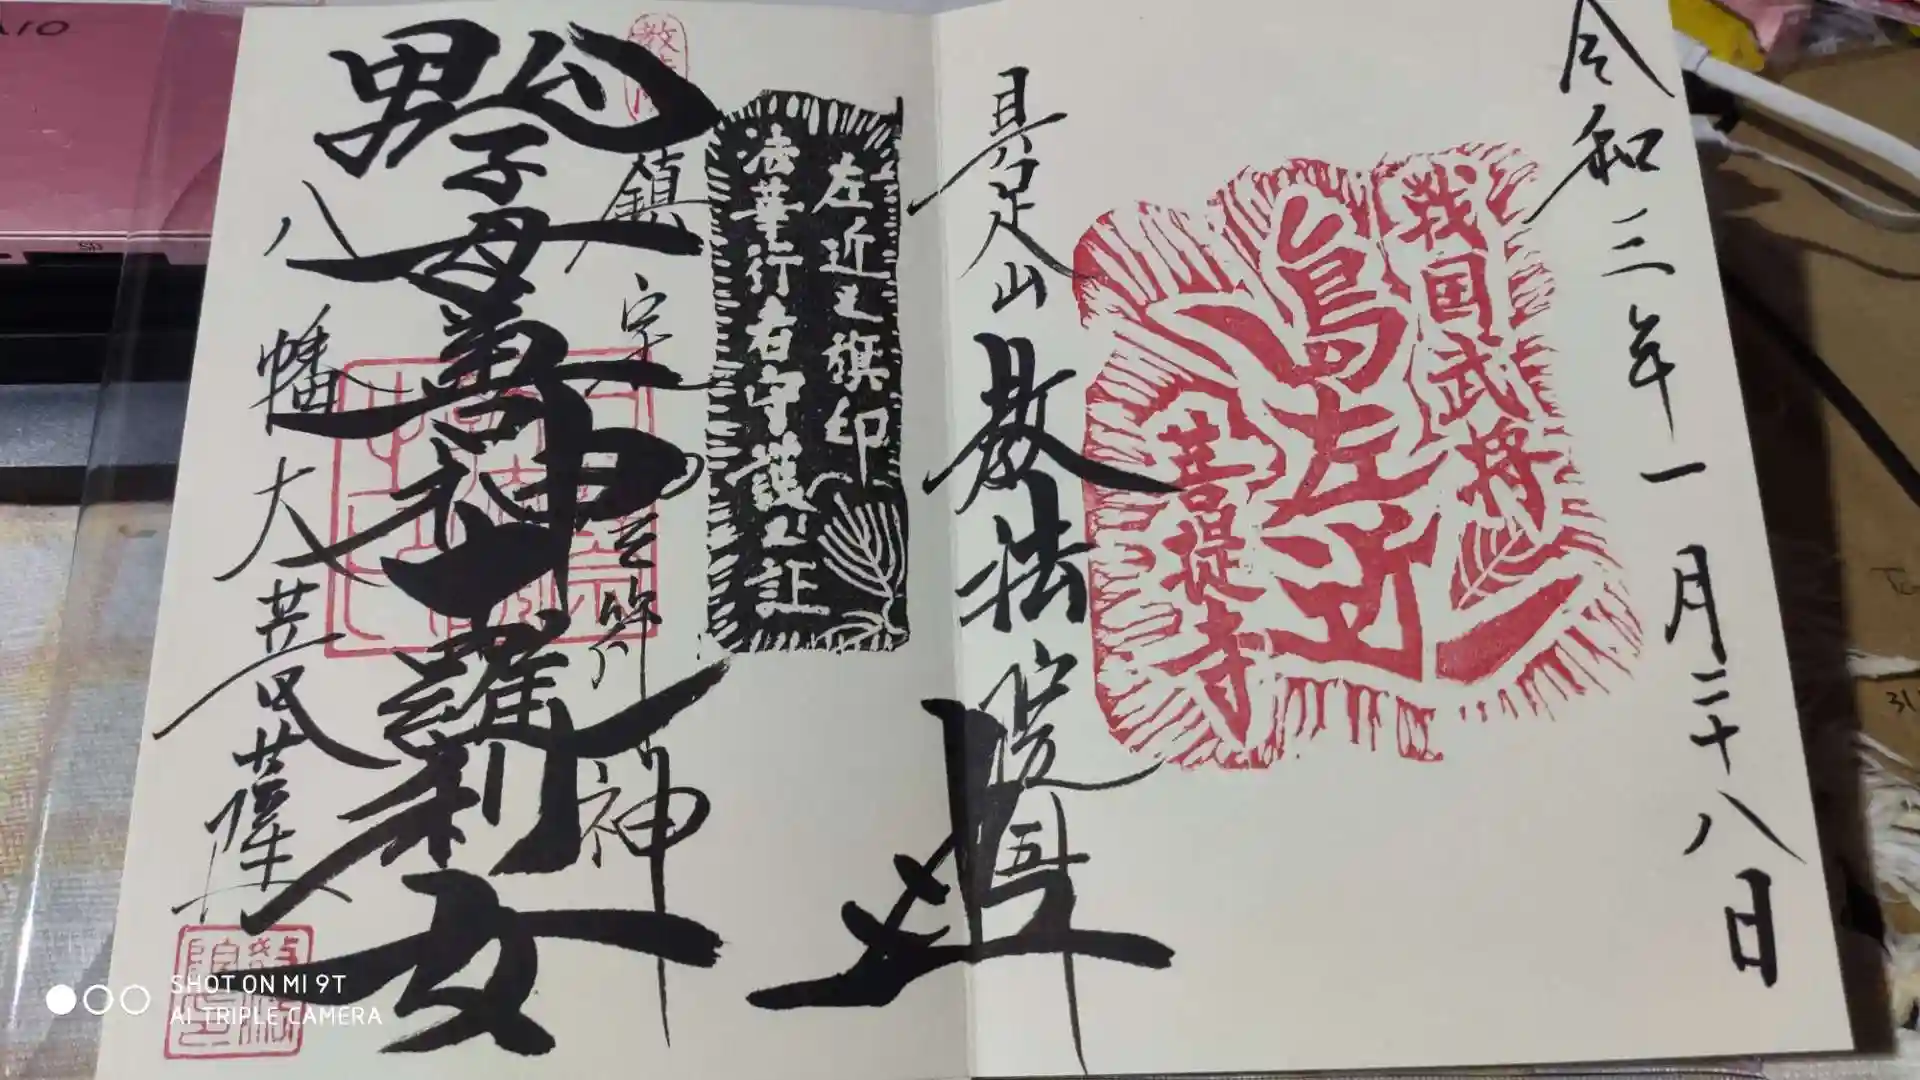 令和三年一月二十八日
戦国武将
島左近
菩提寺
具足山
教法院
左近之旗印
法華行者守護之証
鎮宅霊符神
子母善神十羅刹女
八幡大菩薩
SHOT ON MI 9T
AI TRIPLE CAMERA